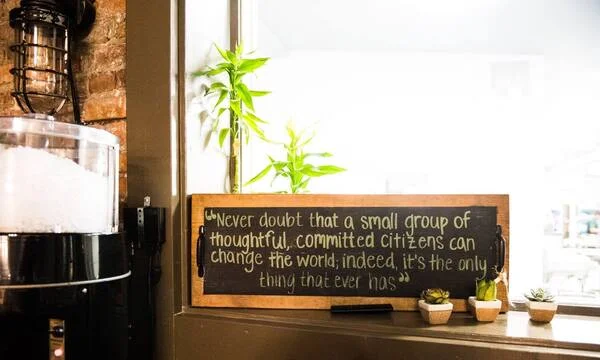 “Never doubt that a small group of
thoughtful, committed citizens can
change the world; indeed, it's the only
thing that ever has”